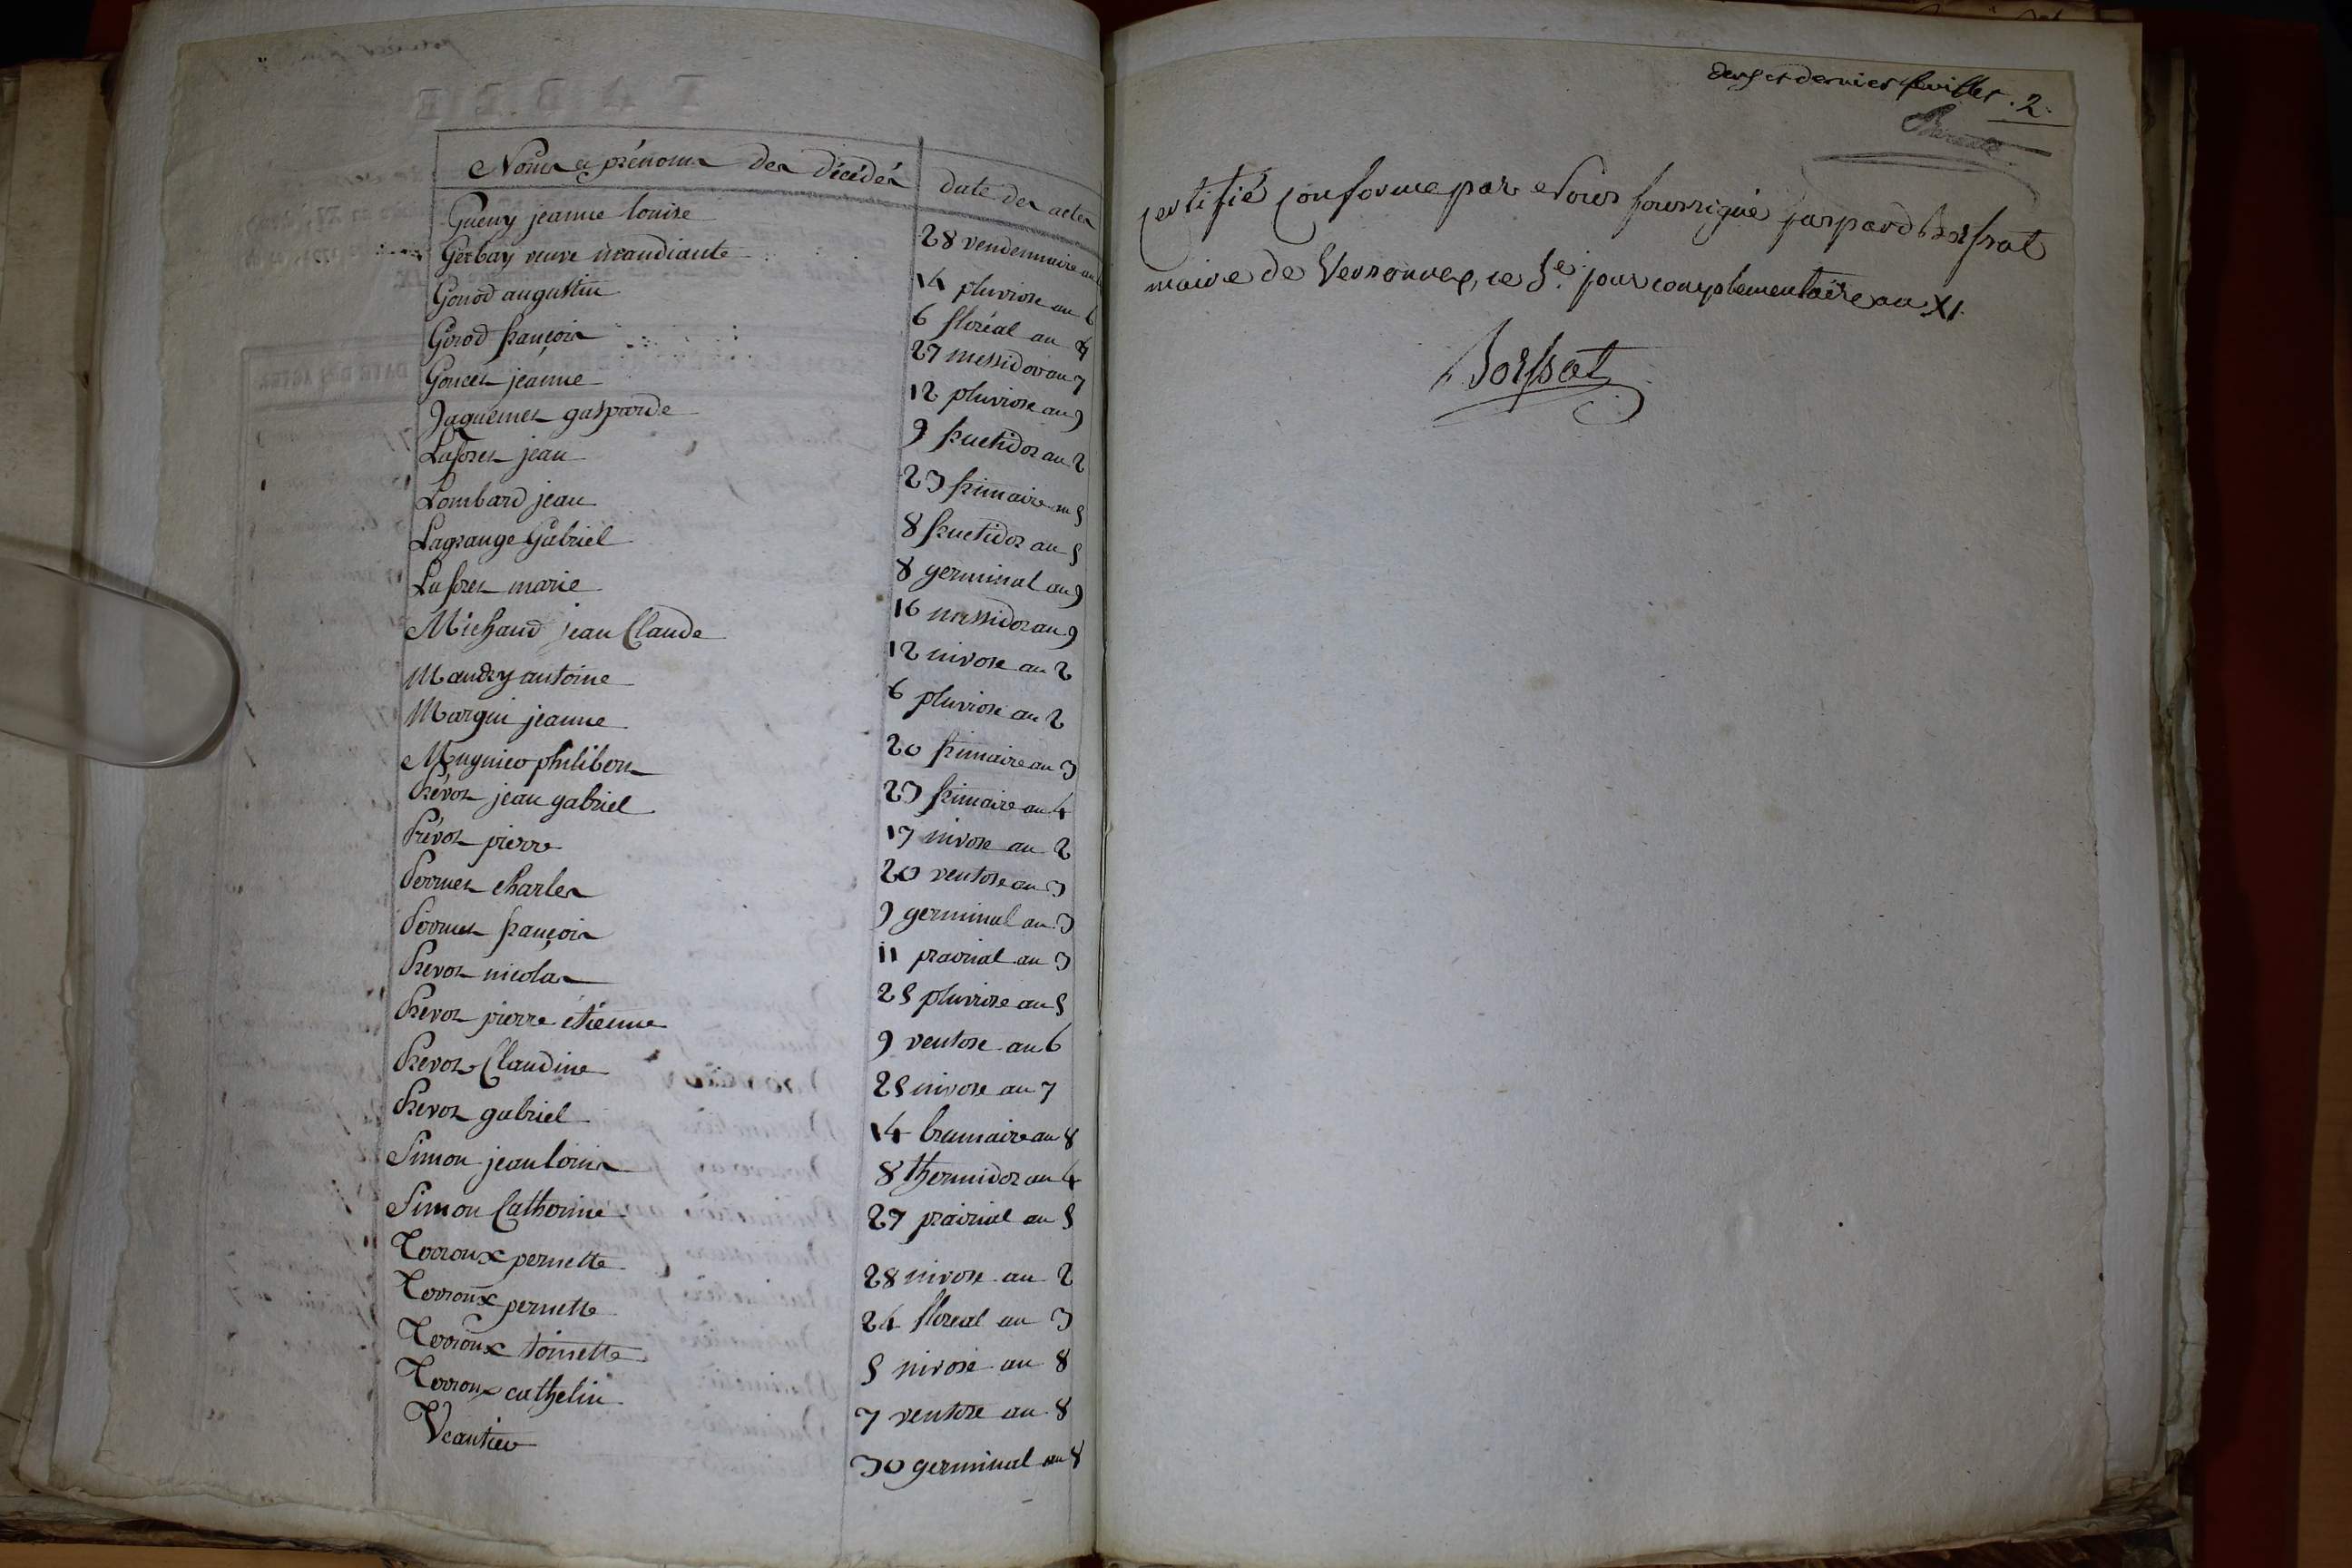 Noms et prénoms des décédés date des actes
Gueny jeanne louise 28 vendemiaire an 6
Gerbay veuve mandiante 14 pluviose an 6
Gonod augustin 6 floréal an 8
Girod françois 27 messidor an 7
Goncet jeanne 12 pluviose an 9
Jaquemet gasparde 9 fructidor an 2
Laforet jean 23 frimaire an 5
Lombard jean 8 fructidor an 5
Lagrange Gabriel 8 germinal an 9
Laforet marie 16 messidor an 9
Michaud jean Claude 12 nivose an 2
Mandry antoine 6 pluviose an 2
Marguin jeanne 20 frimaire an 3
Mugnier philibert 23 frimaire an 4
Prévot jean gabriel 17 nivose an 2
Prévot pierre 20 ventose an 3
Perruet charles 9 germinal an 3
Perruet françois 11 prairial an 3
Prevot nicolas 25 pluviose an 5
Prevot pierre étienne 9 ventose an 6
Prevot Claudine 25 nivose an 7
Prevot gabriel 14 brumaire an 8
Simon jean louis 8 thermidor an 4
Simon Catherine 27 prairial an 5
Terroux pernette 28 nivose an 2
Terroux pernette 24 floreal an 3
Terroux toinette 5 nivose an 8
Terroux cathelin 7 ventose an 8
Vcantier 30 germinal an 8
deux et dernier feuillet. 2.
certifié conforme par Nous soussigné gaspard Borssat
maire de Versonnex, ce 5e. jour complementaire an XI.
Borssat